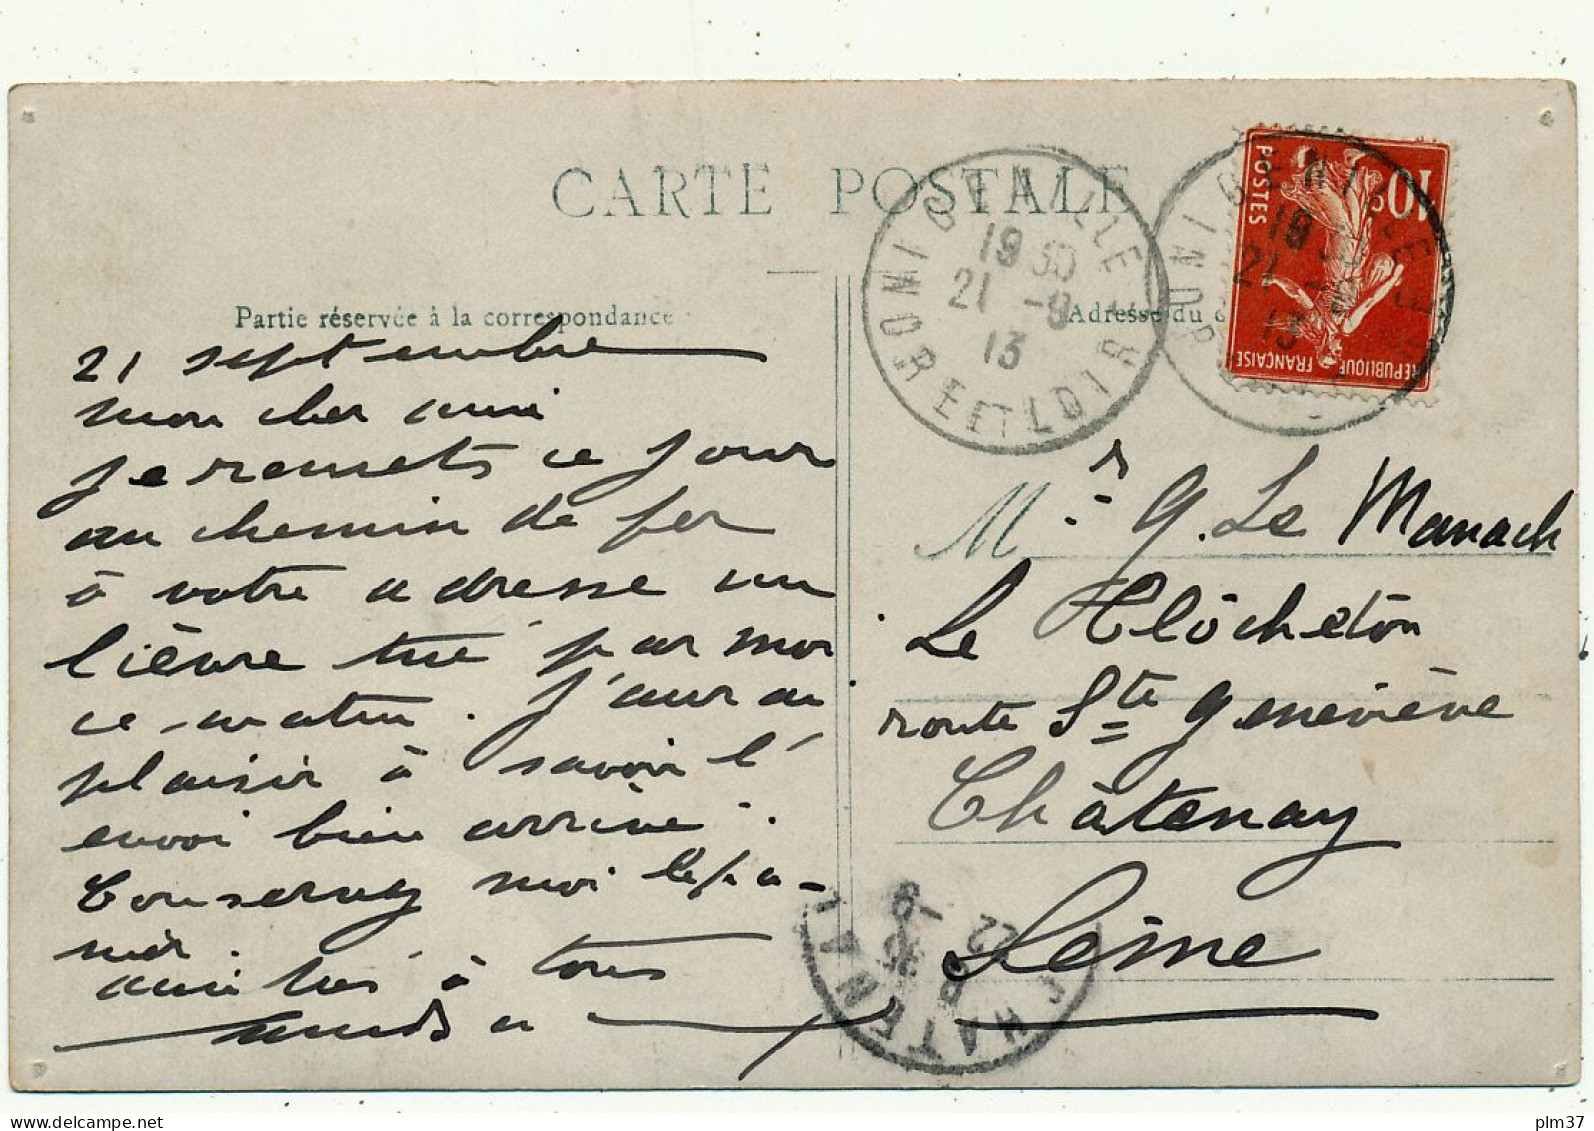 CARTE POSTALE
Partie réservée à la correspondance
21 septembre
mon cher ami
je remets ce jour
au chemin de fer
à votre adresse un
lièvre tué par moi
ce matin. J'aurai
plaisir à savoir l'
envoi bien arrivé.
Conservez moi le pa-
nier.
amitiés à tous
Adresse du
Mr. G. Le Manach
Le Clôcheton
route Ste Geneviève
Châtenay
Seine
ROMIGENILLE
19 30
21 -9
13
EURE ET LOIR
ROMIGENILLE
19 30
21 -9
13
10c
POSTES
REPUBLIQUE FRANÇAISE
CHATENAY
22 -9
plm37